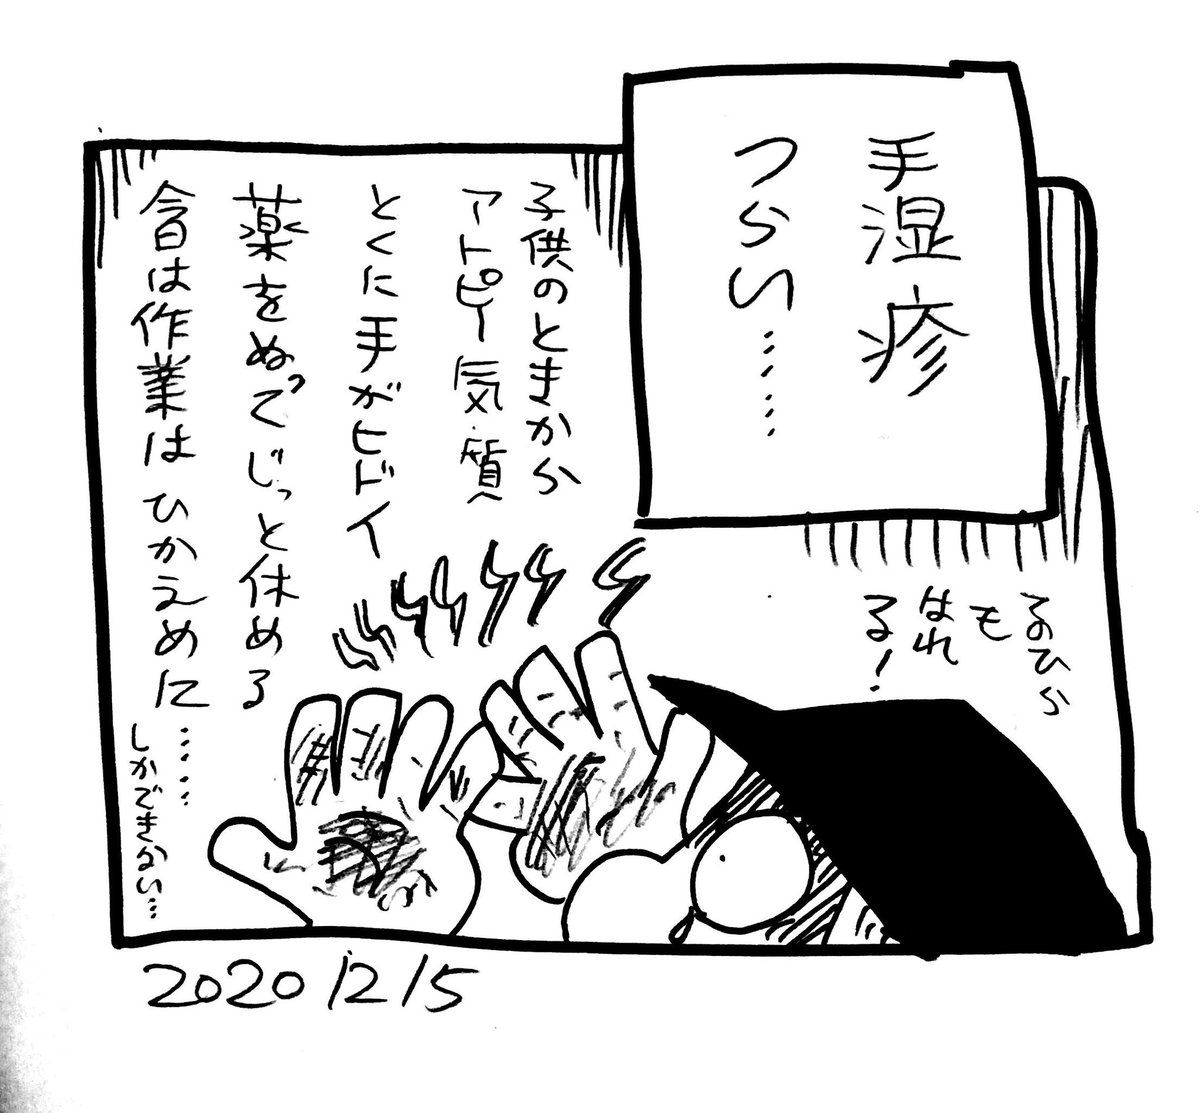 手湿疹
つらい……
子供のときから
アトピー気質
とくに手がヒドイ
薬をぬってじっと休める
今日は作業はひかえめに……
しかできない…
てのひら
も
はれ
る!
2020 12 15